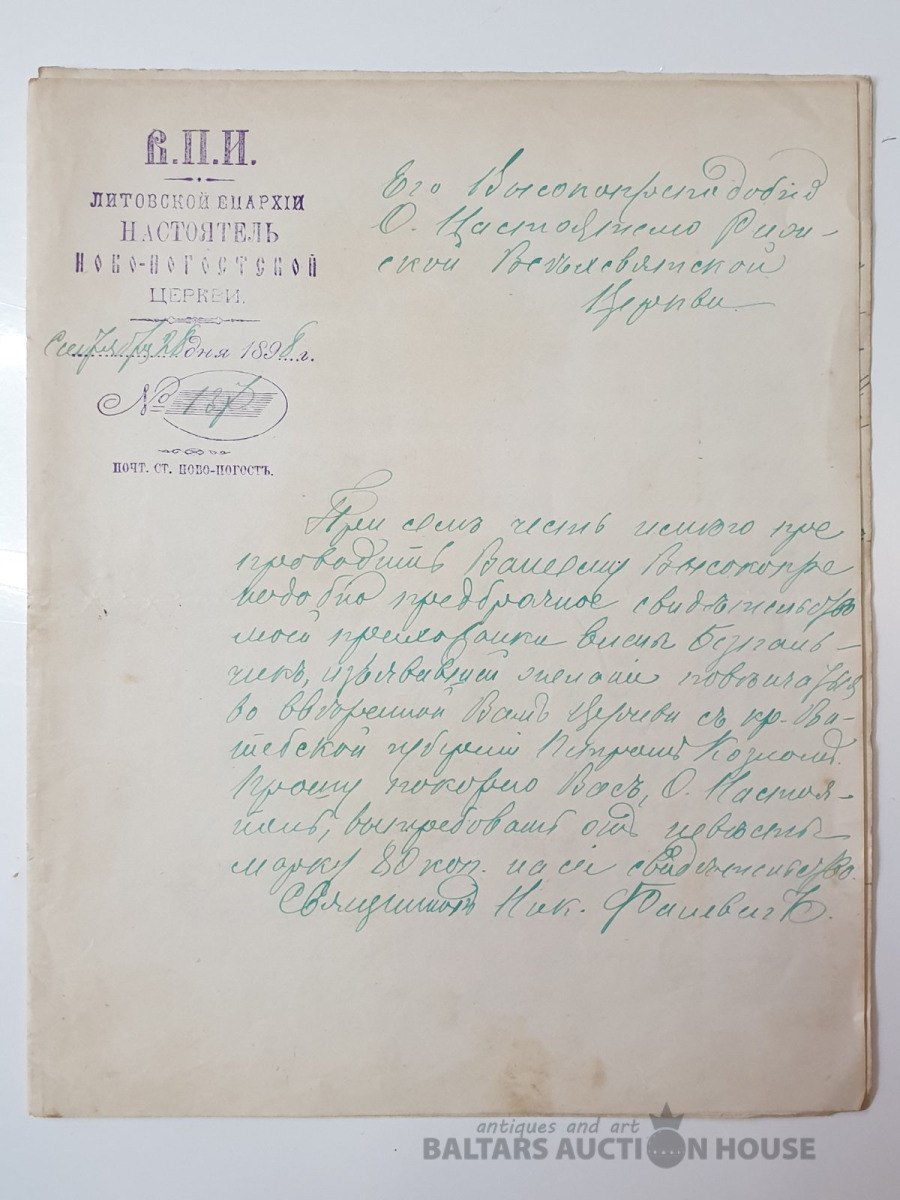 В.П.И.
ЛИТОВСКОЙ ЕПАРХІИ
НАСТОЯТЕЛЬ
НОВО-ПОГОСТСКОЙ
ЦЕРКВИ.
Сентября 28 дня 1898 г.
№ 137
ПОЧТ. СТ. НОВО-ПОГОСТЪ.
Его Высокопреподобію
О. Настоятелю Риж-
ской Всѣхсвятской
Церкви
При семъ честь имѣю пре
проводить Вашему Высокопре
подобію предбрачное свидѣтельство
моей прихожанки
изъявившей желаніе повѣнчаться
во ввѣренной Вамъ Церкви съ кр. Ви-
тебской губерніи Петромъ Козломъ.
Прошу покорно Васъ, О. Настоя-
тель, вытребовать отъ невѣсты
марку 80 коп. на сіе свидѣтельство.
Священникъ Ник.
antiques and art
BALTARS AUCTION HOUSE